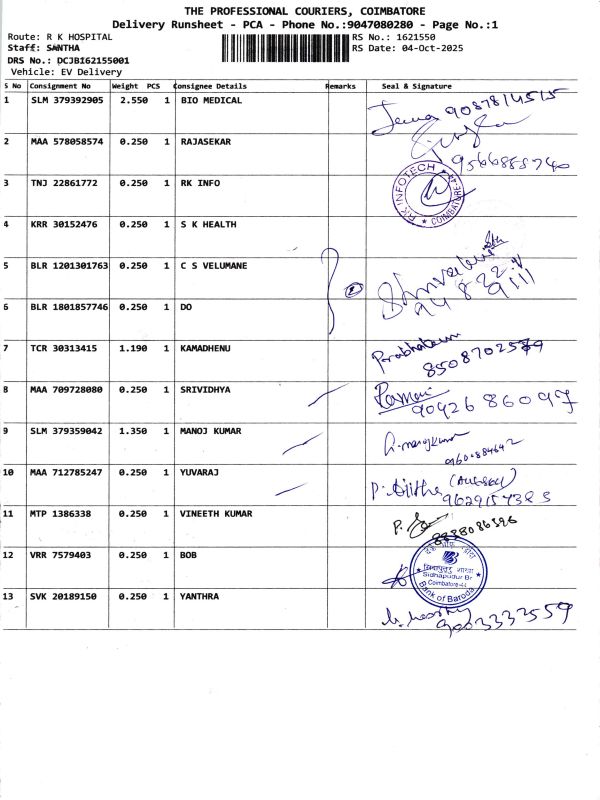 THE PROFESSIONAL COURIERS, COIMBATORE
Delivery Runsheet - PCA - Phone No.:9047080280 - Page No.:1
Route: R K HOSPITAL
Staff: SANTHA
DRS No.: DCJBI62155001
Vehicle: EV Delivery
RS No.: 1621550
RS Date: 04-Oct-2025
S No Consignment No Weight PCS Consignee Details Remarks Seal & Signature
1 SLM 379392905 2.550 1 BIO MEDICAL
2 MAA 578058574 0.250 1 RAJASEKAR
3 TNJ 22861772 0.250 1 RK INFO RK INFOTECH COIMBATORE-44
4 KRR 30152476 0.250 1 S K HEALTH
5 BLR 1201301763 0.250 1 C S VELUMANE
6 BLR 1801857746 0.250 1 DO
7 TCR 30313415 1.190 1 KAMADHENU 8508702579
8 MAA 709728080 0.250 1 SRIVIDHYA 90426 86097
9 SLM 379359042 1.350 1 MANOJ KUMAR
10 MAA 712785247 0.250 1 YUVARAJ
11 MTP 1386338 0.250 1 VINEETH KUMAR
12 VRR 7579403 0.250 1 BOB Sidhapudur Br Coimbatore-44 Bank of Baroda
13 SVK 20189150 0.250 1 YANTHRA 9003333559